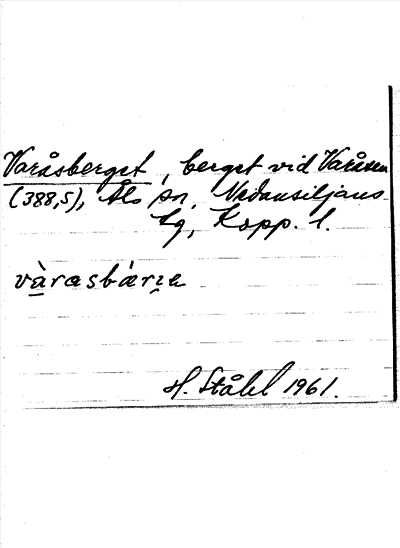 Varåsberget, berget vid Varåsen
(388,5), Åls sn, Nedansiljans
tg, Kopp. l.
vàrasbárje
H. Ståhl 1961.